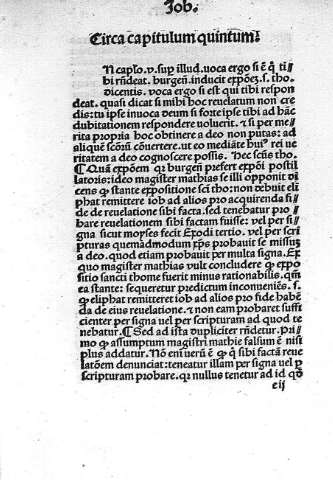 Job.
Circa capitulum quintum
N caplo.v.sup illud.voca ergo si ē q̄ ti
bi rñdeat. burgeñ.inducit expōez.s.tho.
dicentis. voca ergo si est qui tibi respon
deat. quasi dicat si mihi hoc reuelatum non cre
dis:tu ipse inuoca deum si forte ipse tibi ad hāc
dubitationem respondere voluerit. ⁊ si per me
rita propria hoc obtinere a deo non putas: ad
aliquē scōrū cōuertere.vt eo mediāte huiꝰ rei ve
ritatem a deo cognoscere possis. Hec scūs tho.
¶ Quā expōem qr burgeñ prefert expōni postil
latoris:ideo magister mathias ei illi opponit di
cens ꝙ stante expositione sci tho:non debuit eli
phat remittere iob ad alios pro acquirenda fi
de de reuelatione sibi facta.sed tenebatur pro
bare reuelationem sibi factam fuisse: vel per si
gna sicut moyses fecit Exodi tertio. vel per scri
pturas quemadmodum xp̄s probauit se missuꝫ
a deo. quod etiam probauit per multa signa. Ex
quo magister mathias vult concludere ꝙ expo
sitio sancti thome fuerit minus rationabilis. qm̄
ea stante: sequeretur predictum inconueniēs. s.
ꝙ eliphat remitteret iob ad alios pro fide habē
da de eius reuelatione. ⁊ non eam probaret suffi
cienter per signa vel per scripturam ad quod te
nebatur. ¶ Sed ad ista dupliciter rñdetur. Pri
mo ꝙ assumptum magistri mathie falsum ē nisi
plus addatur. Nō eni verū ē ꝙ q̄ sibi factā reue
latōem denunciat: teneatur illam per signa vel ꝑ
scripturam probare. qr nullus tenetur ad id qđ
eij